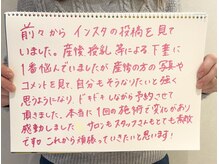 前々から インスタの投稿を見て
いました。産後 授乳 等による下垂に
1番悩んでいましたが 産後の方の写真や
コメントを見て、自分もそうなりたいと強く
思うようになり ドキドキしながら予約させて
頂きました。本当に1回の施術で変化があり
感動しました サロンもスタッフさんもとても素敵
です♡ これから頑張っていきたいと思います!